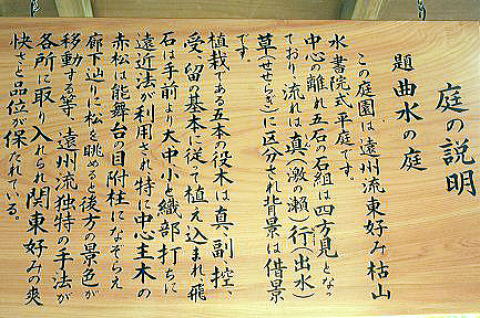 庭の説明
題 曲水の庭
この庭園は、遠州流東好み枯山
水書院式平庭です。
中心の離れ五石の石組は四方見となっ
ており、流れは真(激の瀬)行(出水)
草(せせらぎ)に区分され背景は借景
です。
植栽である五本の役木は、真、副、控、
受、留の基本に従って植え込まれ、飛
石は手前より大中小と織部打ちに
遠近法が利用され、特に中心主木の
赤松は能舞台の目附柱になぞらえ
廊下辿りに松を眺めると後方の景色が
移動する等、遠州流独特の手法が
各所に取り入れられ関東好みの爽
快さと品位が保たれている。